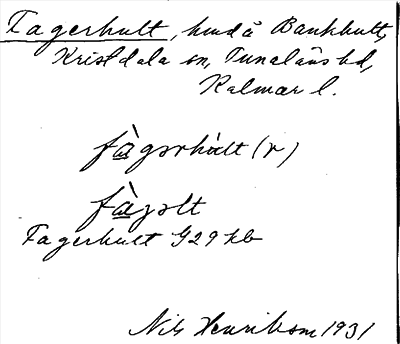 Fagerhult, hmd å Bankhult,
Kristdala sn, Tunaläns hd,
Kalmar l.
fà̲gərhàlt (r)
fà̲gəlt
Fagerhult G29 kb
Nils Henriksson 1931